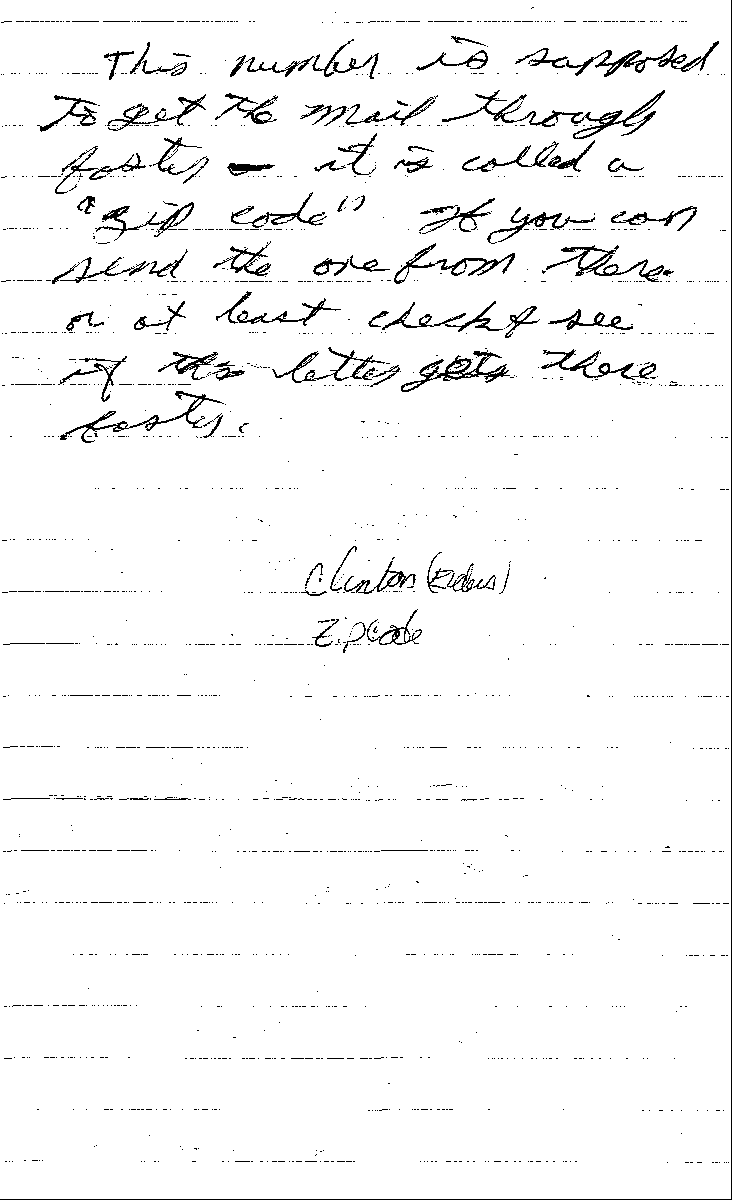 This number is supposed
To get The Mail through
faster — it is called a
"zip code" If you can
send the one from there
or at least check & see
if this letter gets there
faster.
Clinton
Zipcode